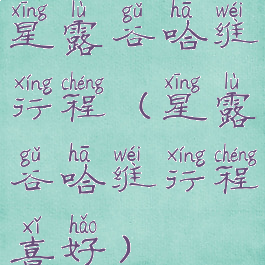 xīng lù gǔ hā wéi
星露谷哈維
xíng chéng xīng lù
行程（星露
gǔ hā wéi xíng chéng
谷哈維行程
xǐ hǎo
喜好）